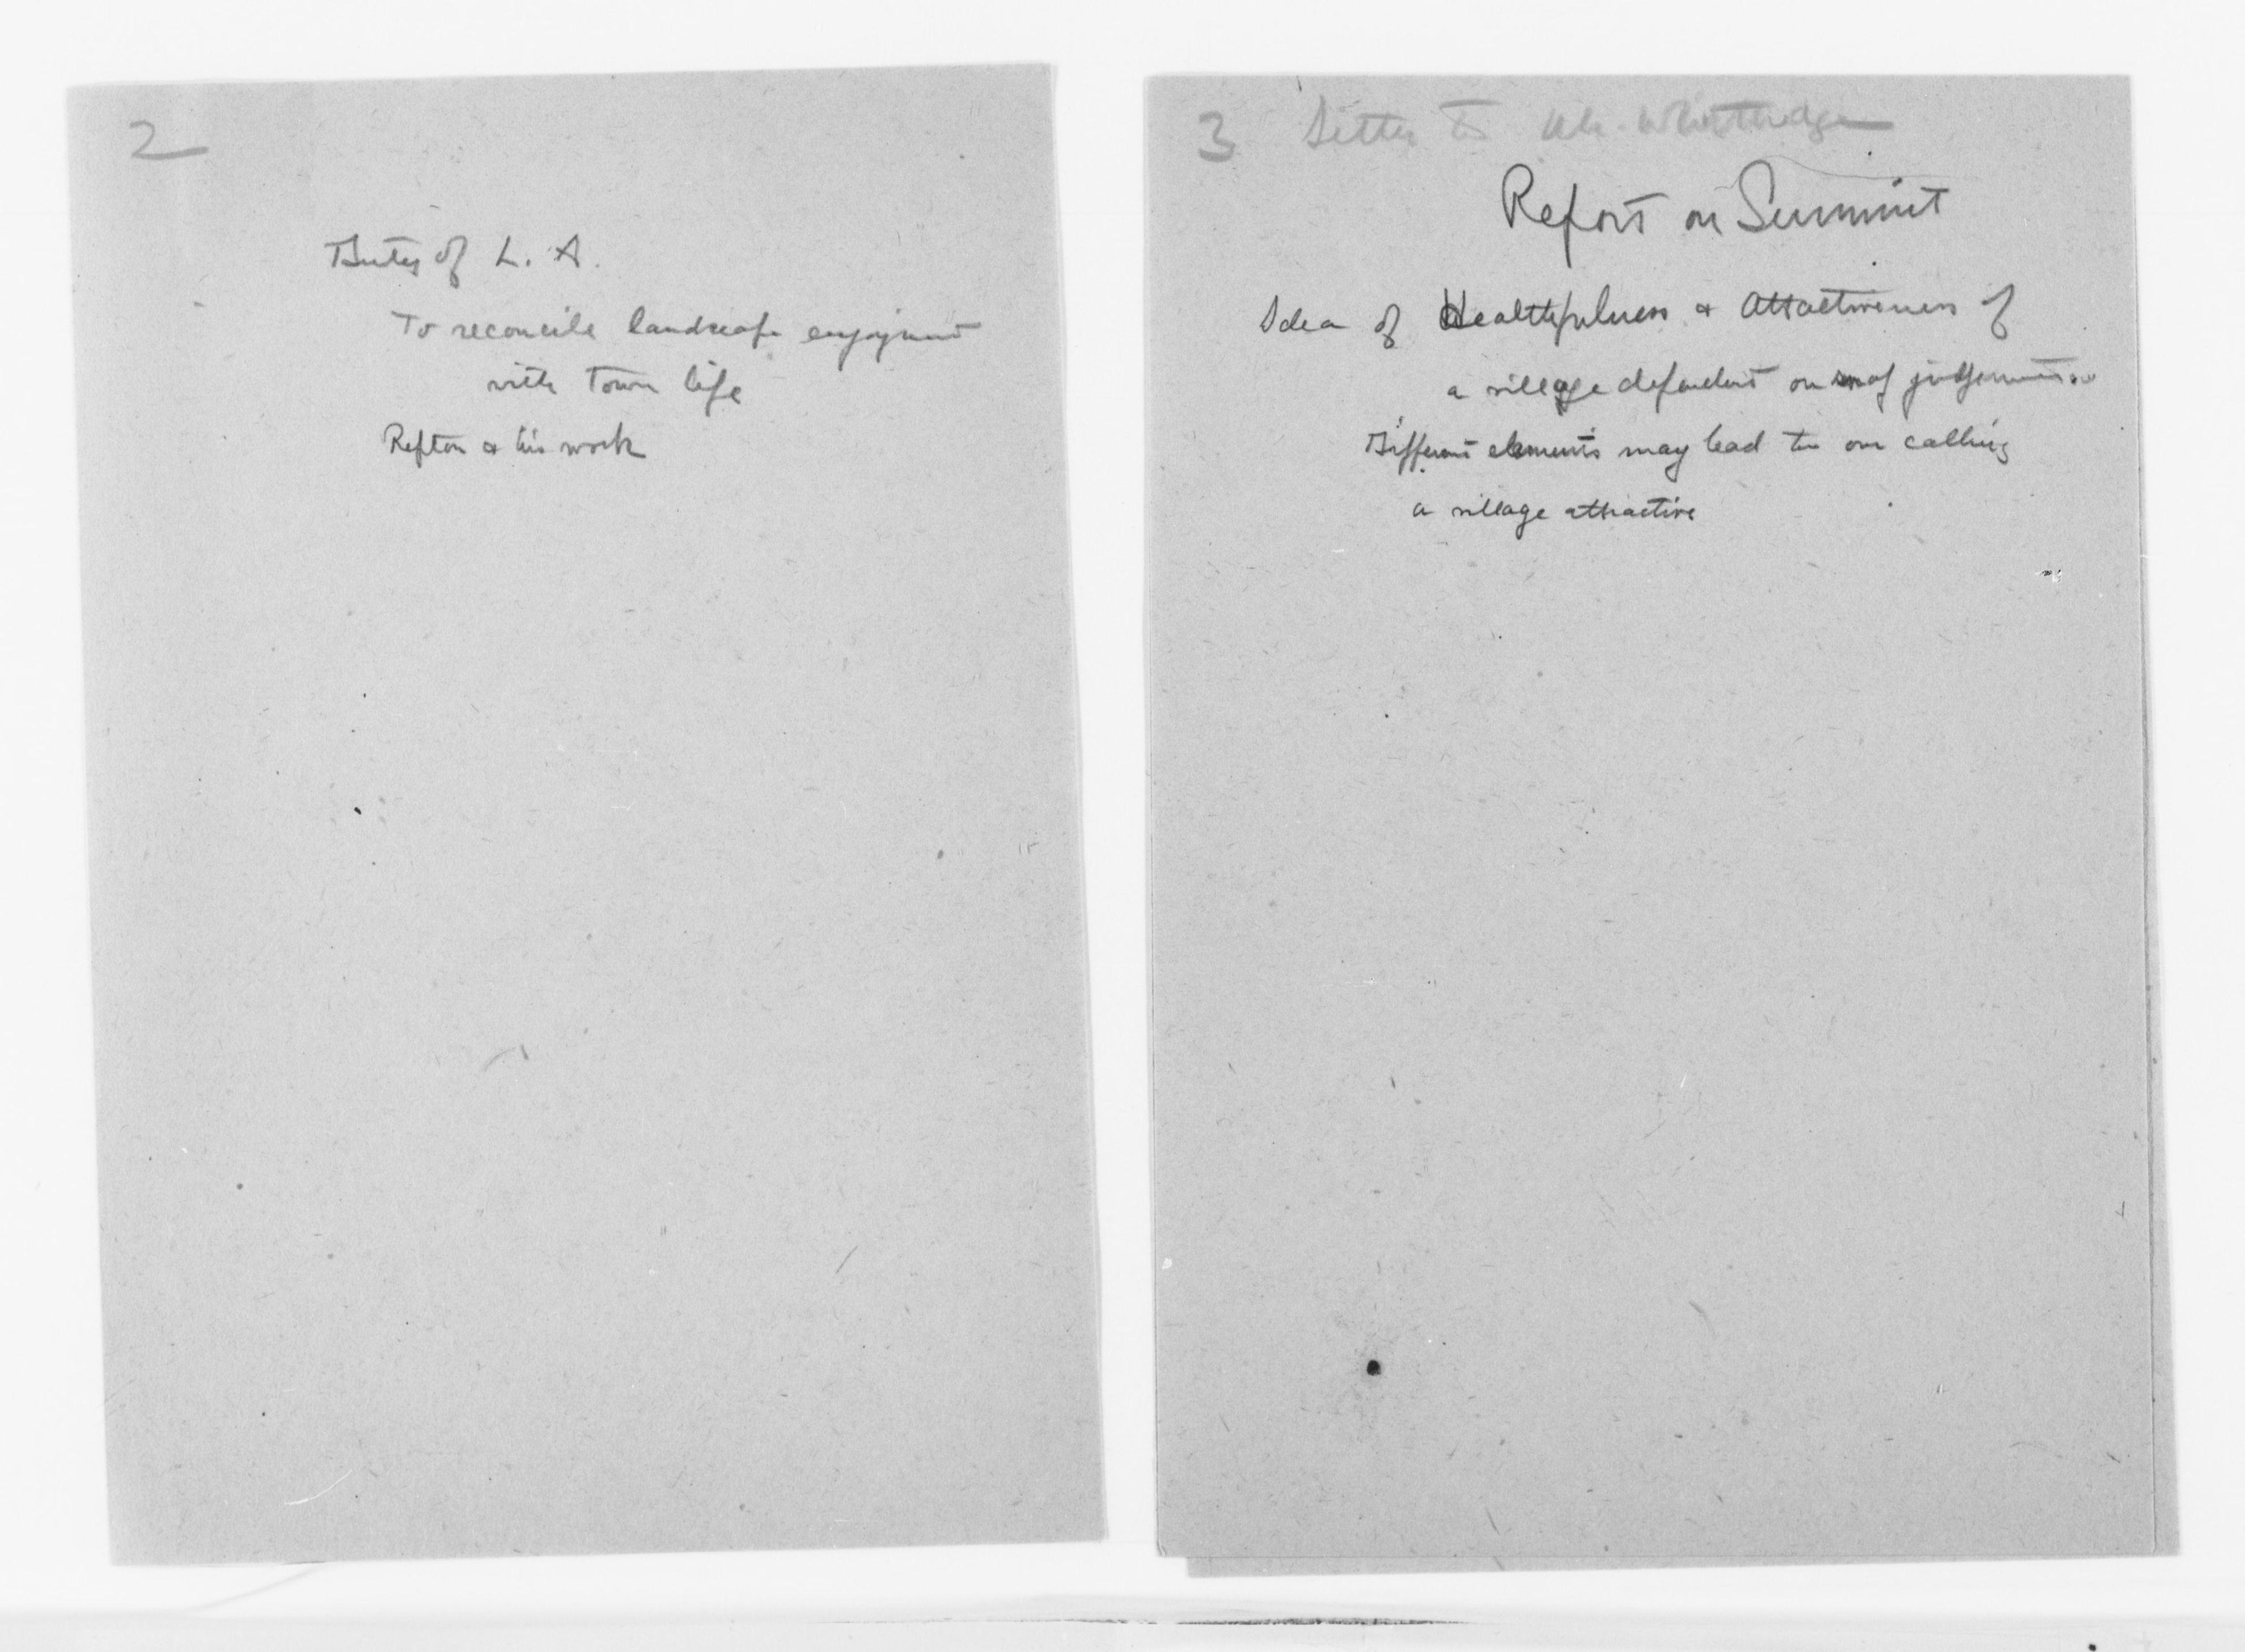 2
Duty of L. A.
To reconcile landscape enjoyment
with Town life
Repton & his work
3 Letter to Mr. Whittredge
Report on Summit
Idea of Healthfulness & Attractiveness of
a village dependent on judgement
Different elements may lead to our calling
a village attractive